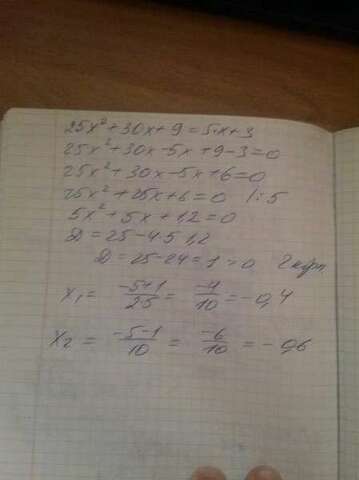 25x² + 30x + 9 = 5x + 3
25x² + 30x - 5x + 9 - 3 = 0
25x² + 30x - 5x + 6 = 0
25x² + 25x + 6 = 0 | : 5
5x² + 5x + 1,2 = 0
D = 25 - 4·5·1,2
D = 25 - 24 = 1 > 0 2 кор
x₁ = (-5+1)/25 = -4/10 = -0,4
x₂ = (-5-1)/10 = -6/10 = -0,6